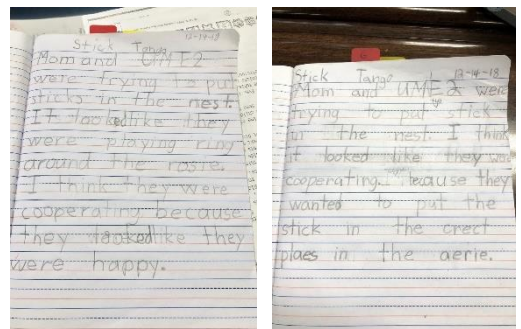 Stick Tango 12-14-18
Mom and UME2
were trying to put
sticks in the nest.
It looked like they
were playing ring
around the rosie.
I think they were
cooperating because
they looked like they
were happy.
Stick Tango 12-14-18
Mom and UME2 were
trying to put stick
in the nest. I think
it looked like they
cooperating. because they
wanted to put the
stick in the crect
plaes in the aerie.